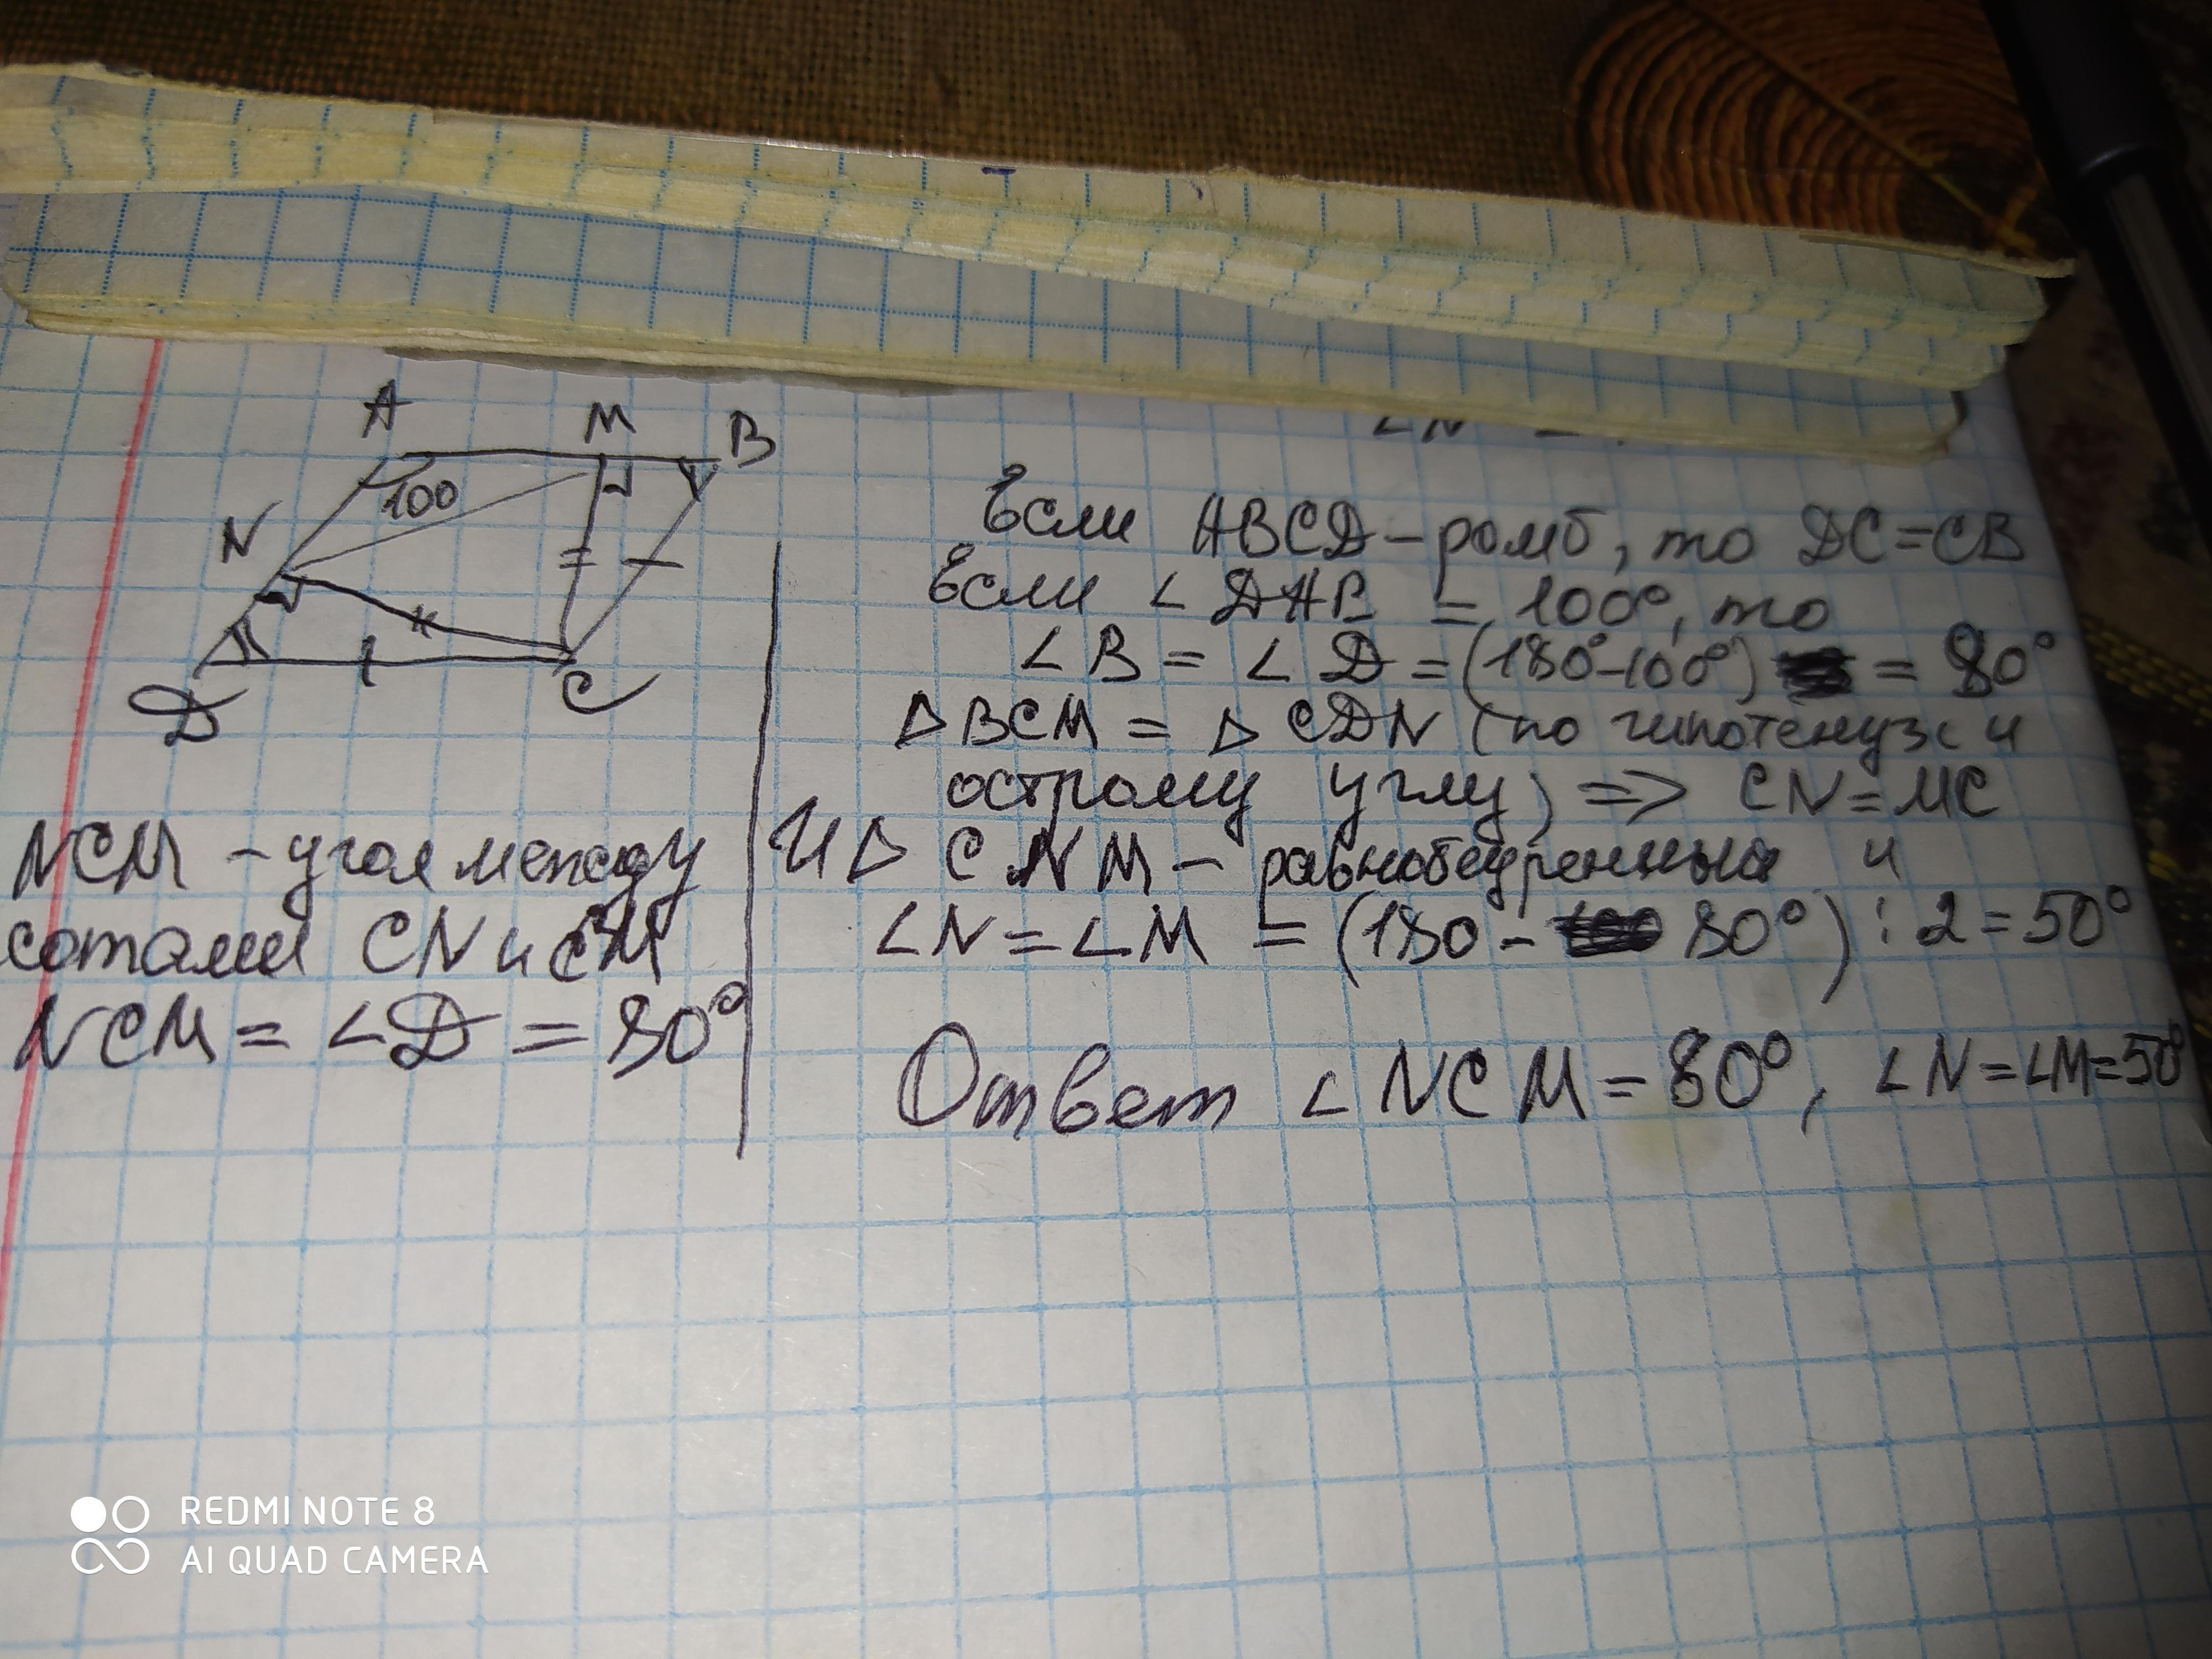 A M B
100
N
D C
NCM – угол между
сотами CN и CM
NCM = ∠D = 80°
∠N =
Если ABCD – ромб, то DC = CB
Если ∠DAB = 100°, то
∠B = ∠D = (180°-100°) = 80°
△BCM = △CDN (по гипотенузе и
острому углу) => CN = MC
И △CNM – равнобедренный и
∠N = ∠M = (180 - 80°) : 2 = 50°
Ответ ∠NCM = 80°, ∠N = ∠M = 50°
REDMI NOTE 8
AI QUAD CAMERA